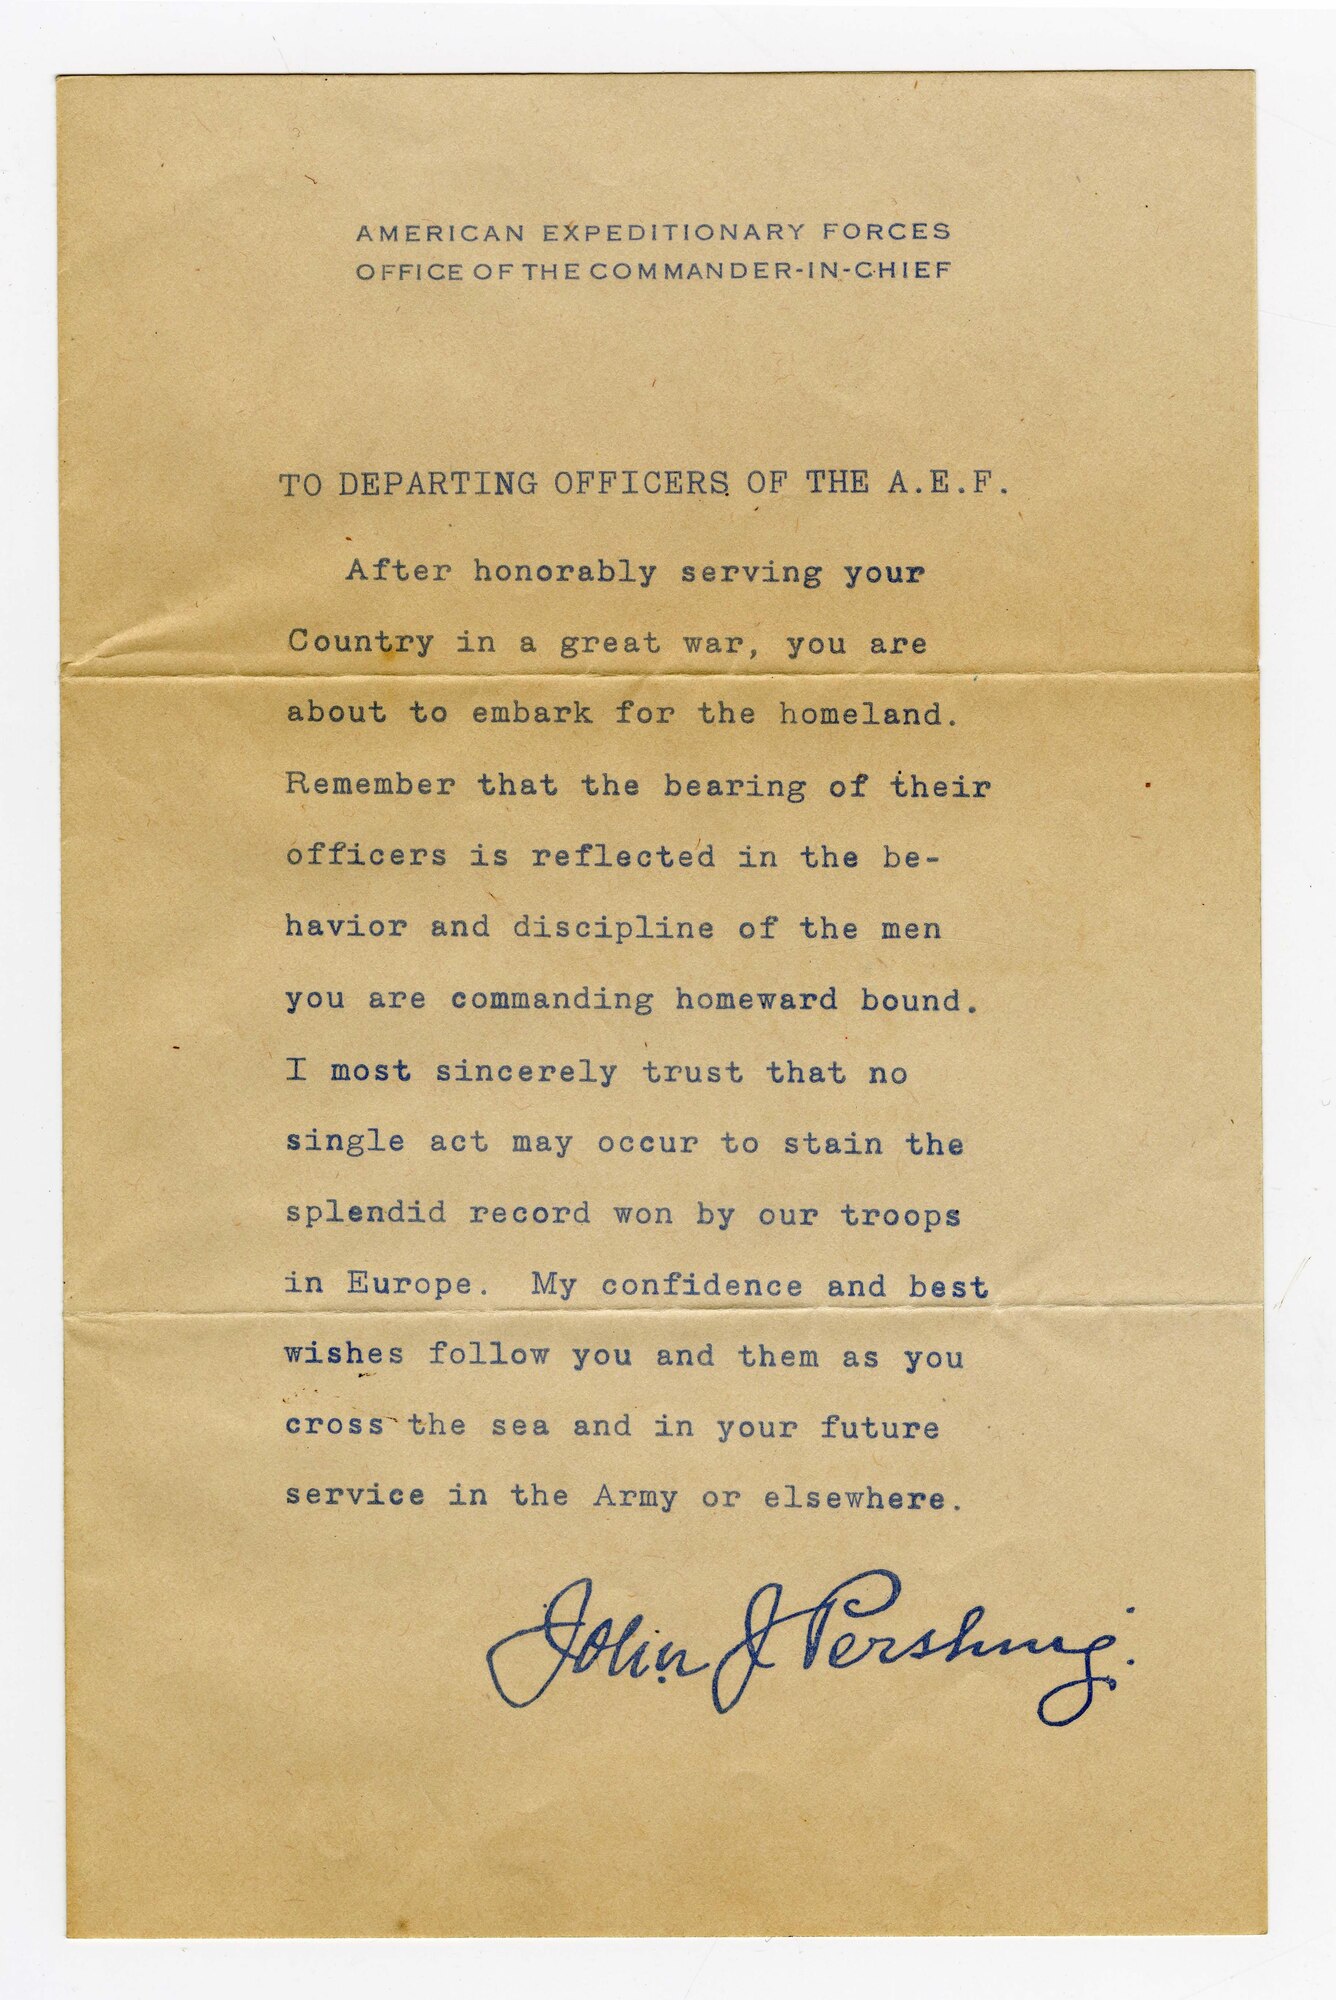 AMERICAN EXPEDITIONARY FORCES
OFFICE OF THE COMMANDER-IN-CHIEF
TO DEPARTING OFFICERS OF THE A.E.F.
After honorably serving your
Country in a great war, you are
about to embark for the homeland.
Remember that the bearing of their
officers is reflected in the be-
havior and discipline of the men
you are commanding homeward bound.
I most sincerely trust that no
single act may occur to stain the
splendid record won by our troops
in Europe. My confidence and best
wishes follow you and them as you
cross the sea and in your future
service in the Army or elsewhere.
John J Pershing.